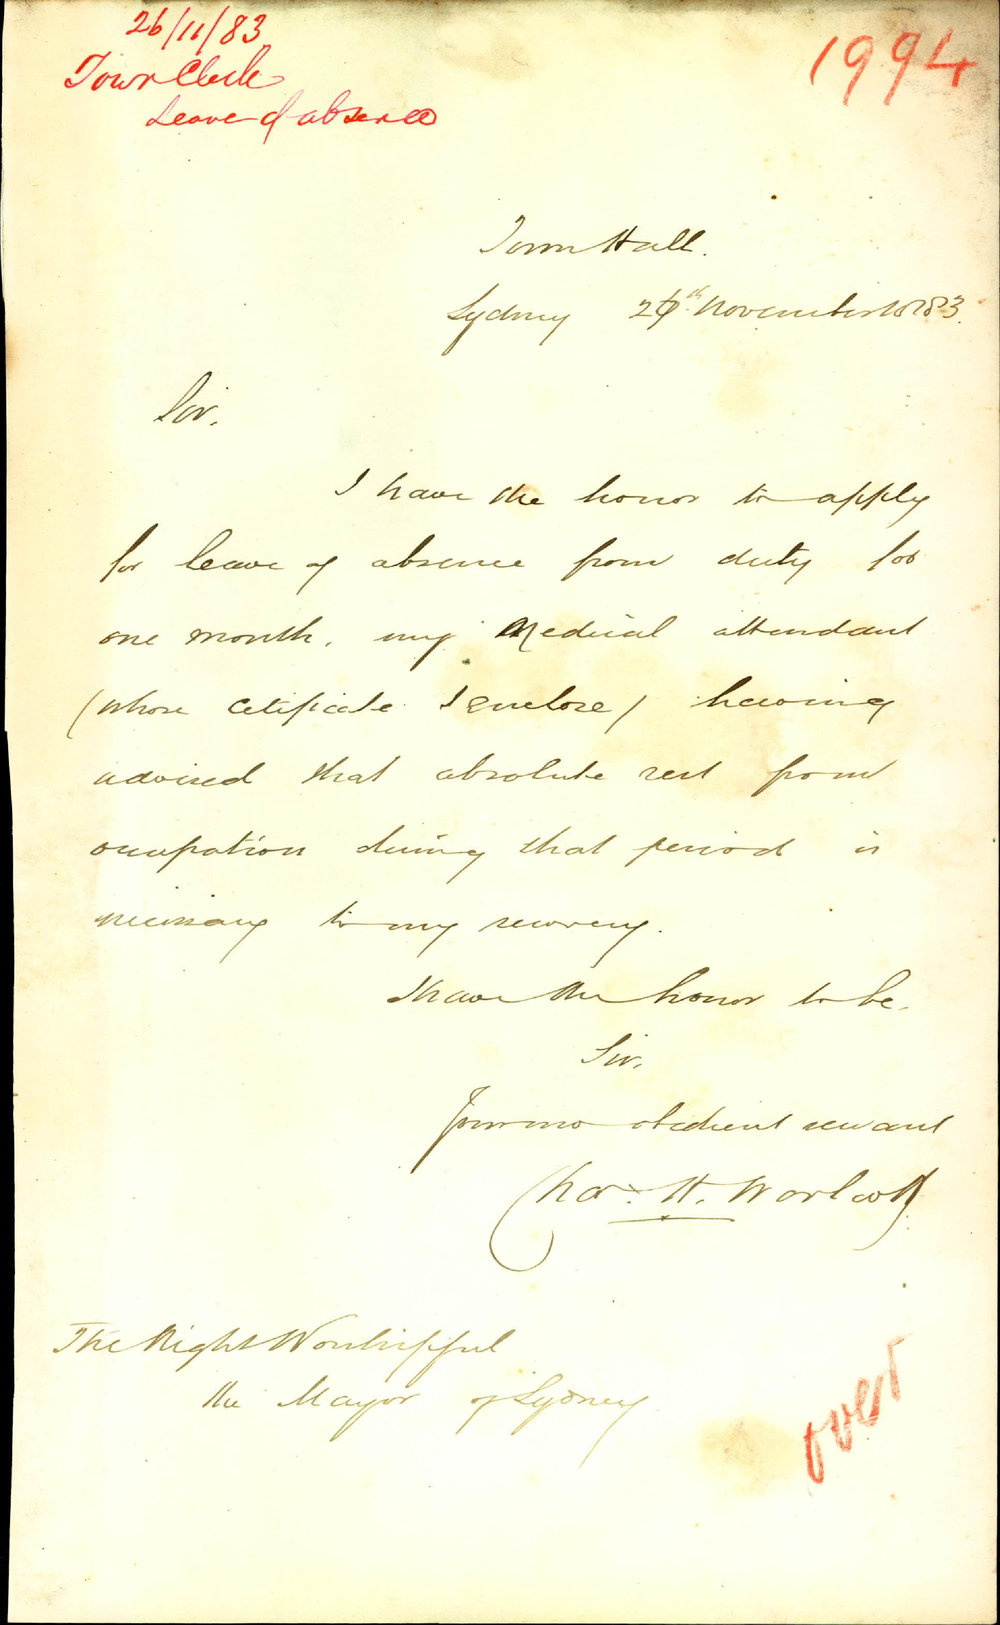 26/11/83
Town Clerk
Leave of absence
1994
Town Hall.
Sydney 26th November 1883.
Sir,
I have the honor to apply
for leave of absence from duty for
one month, my Medical attendant
(whose cetificate I enclose) having
advised that absolute rest from
occupation during that period is
necessary to my recovery.
I have the honor to be.
Sir,
Your mo obedient servant
Chas. H. Woolcott
The Right Worshipful
the Mayor of Sydney
over